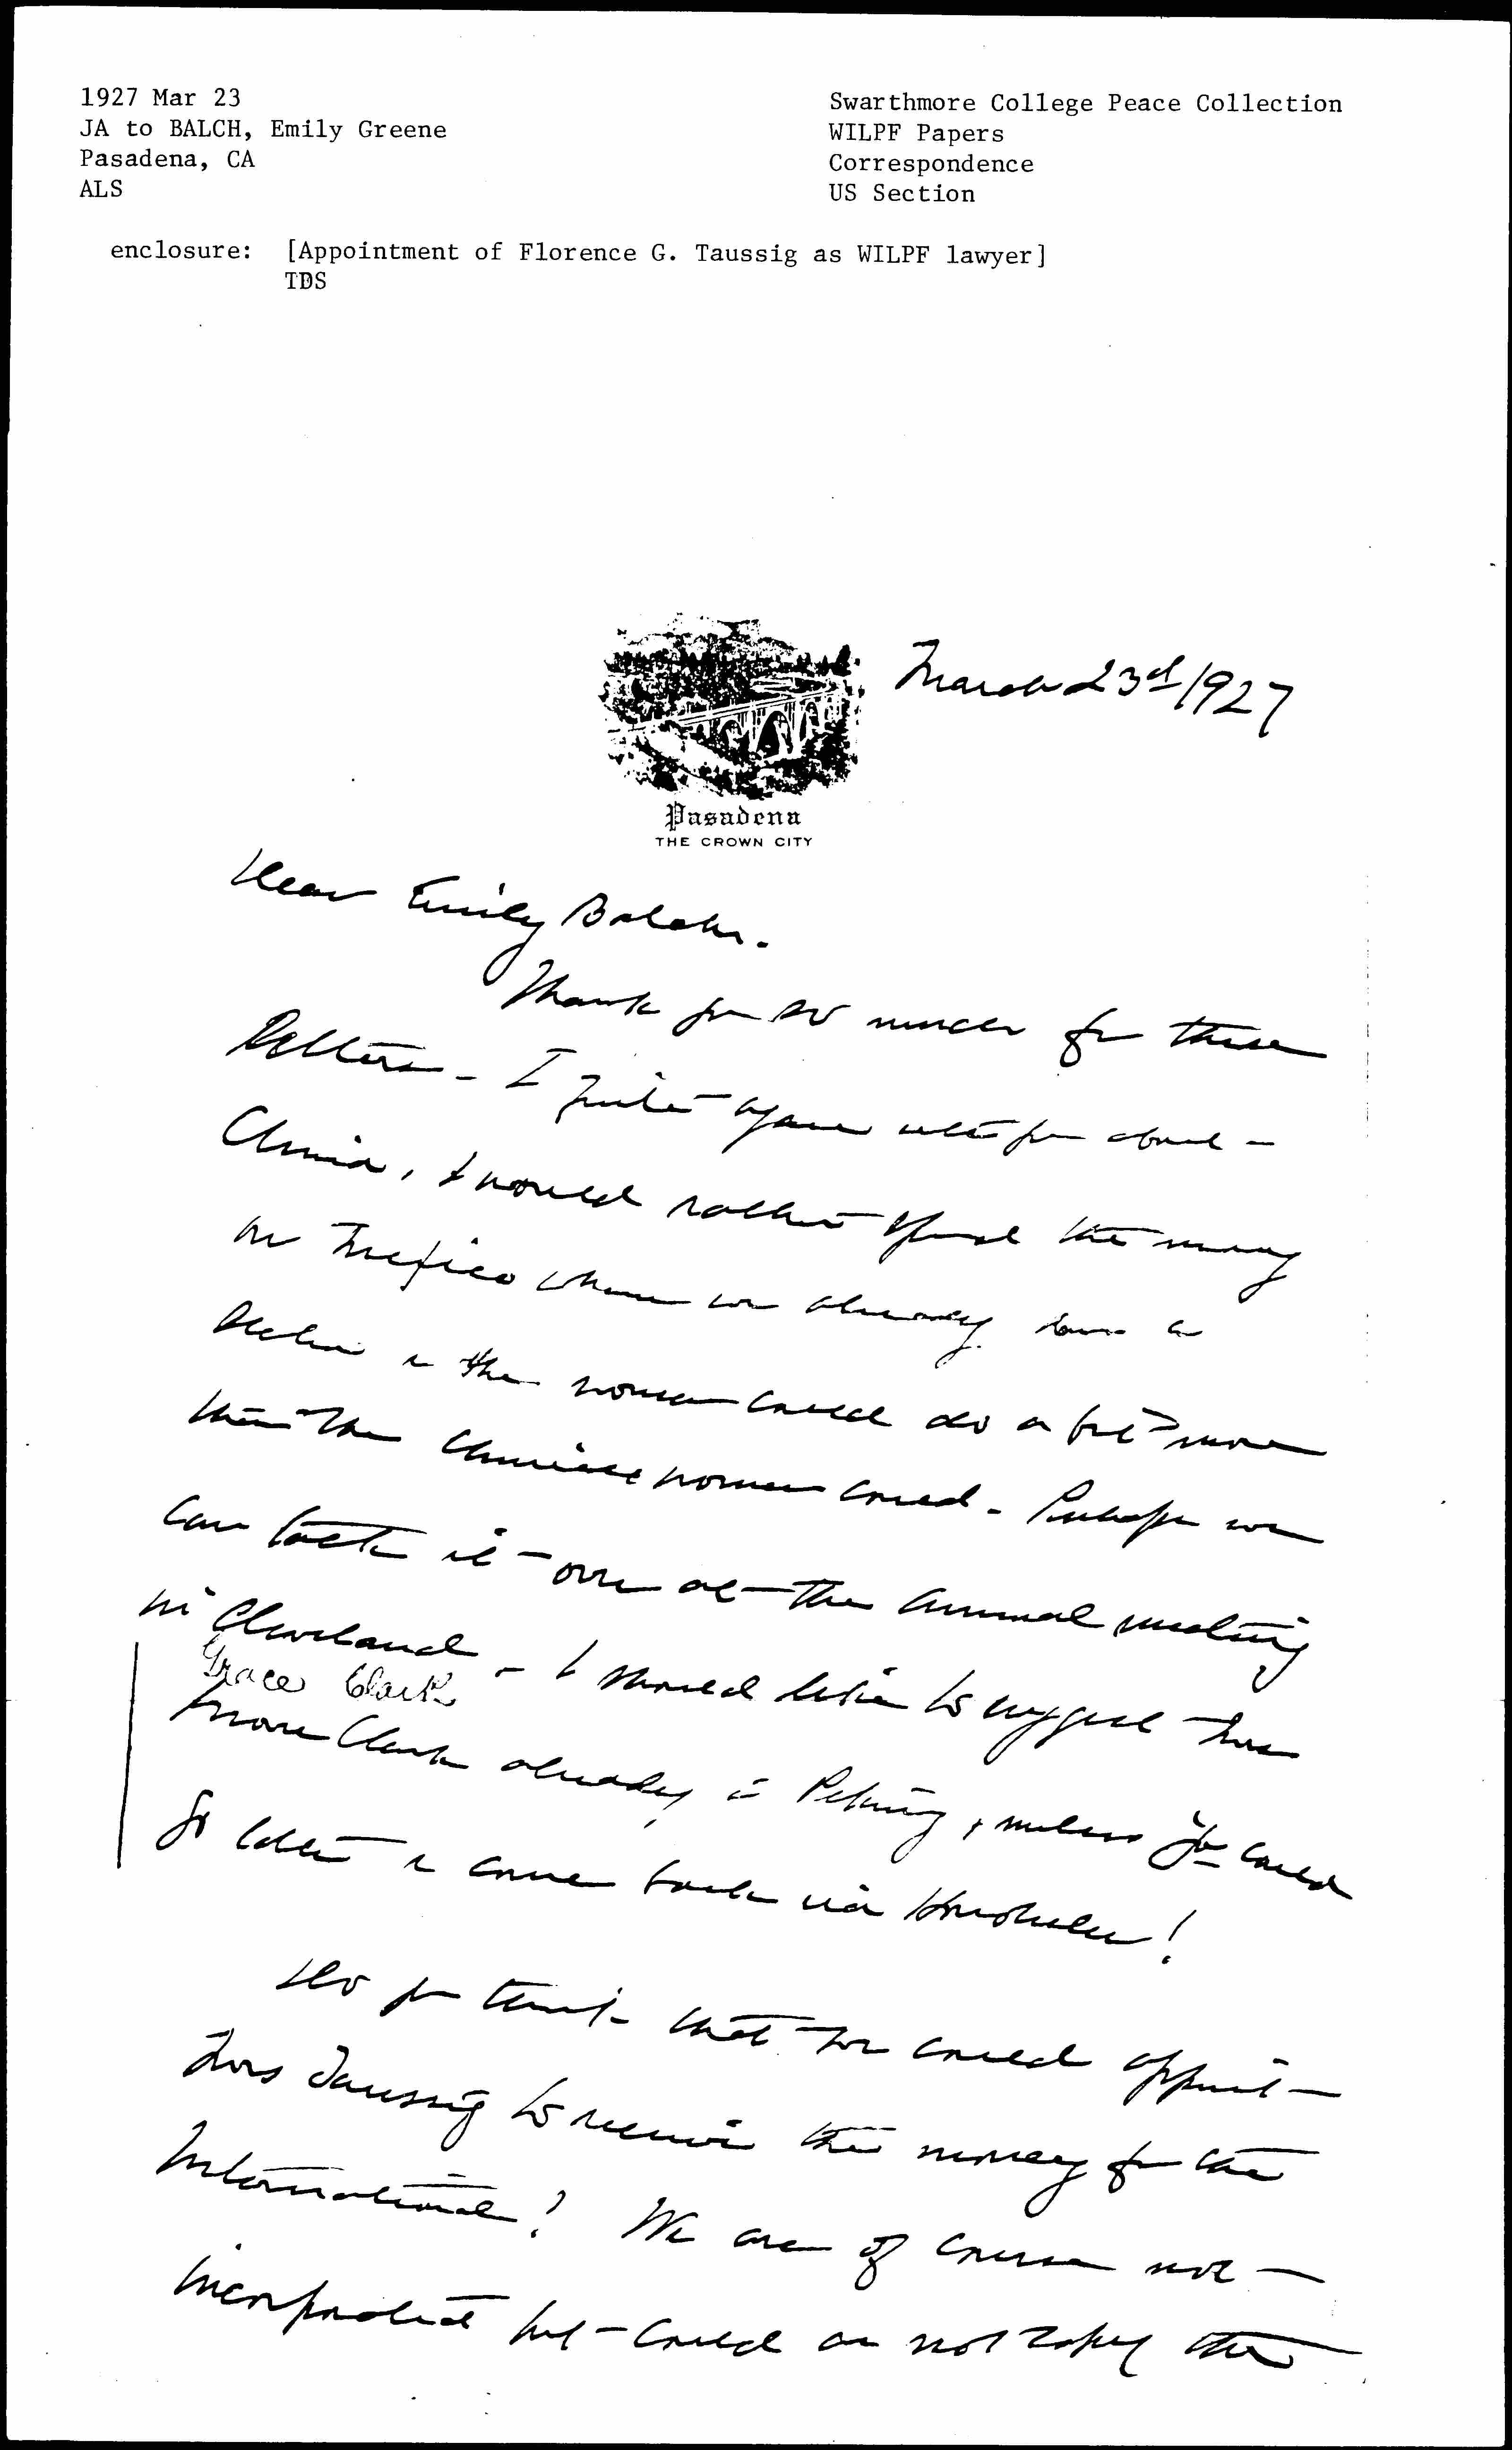 1927 Mar 23
JA to BALCH, Emily Greene
Pasadena, CA
ALS
Swarthmore College Peace Collection
WILPF Papers
Correspondence
US Section
enclosure: [Appointment of Florence G. Taussig as WILPF lawyer]
TDS
March 23d 1927
Pasadena
THE CROWN CITY
Dear Emily Balch.
Thank you so much for these
letters - I quite agree with you about
China, I would rather spend the money
on Mexico where we already have a
section & the women could do a bit more
than the Chinese women could - Perhaps we
can talk it over at the annual meeting
in Cleveland - I should like to suggest
Grace Clark
Clark already in Peking, unless you could
go later & come back via Honolulu!
Do you think that we could appoint
Taussig to receive the money for the
International? We are of course not
incorporated but could we not copy the